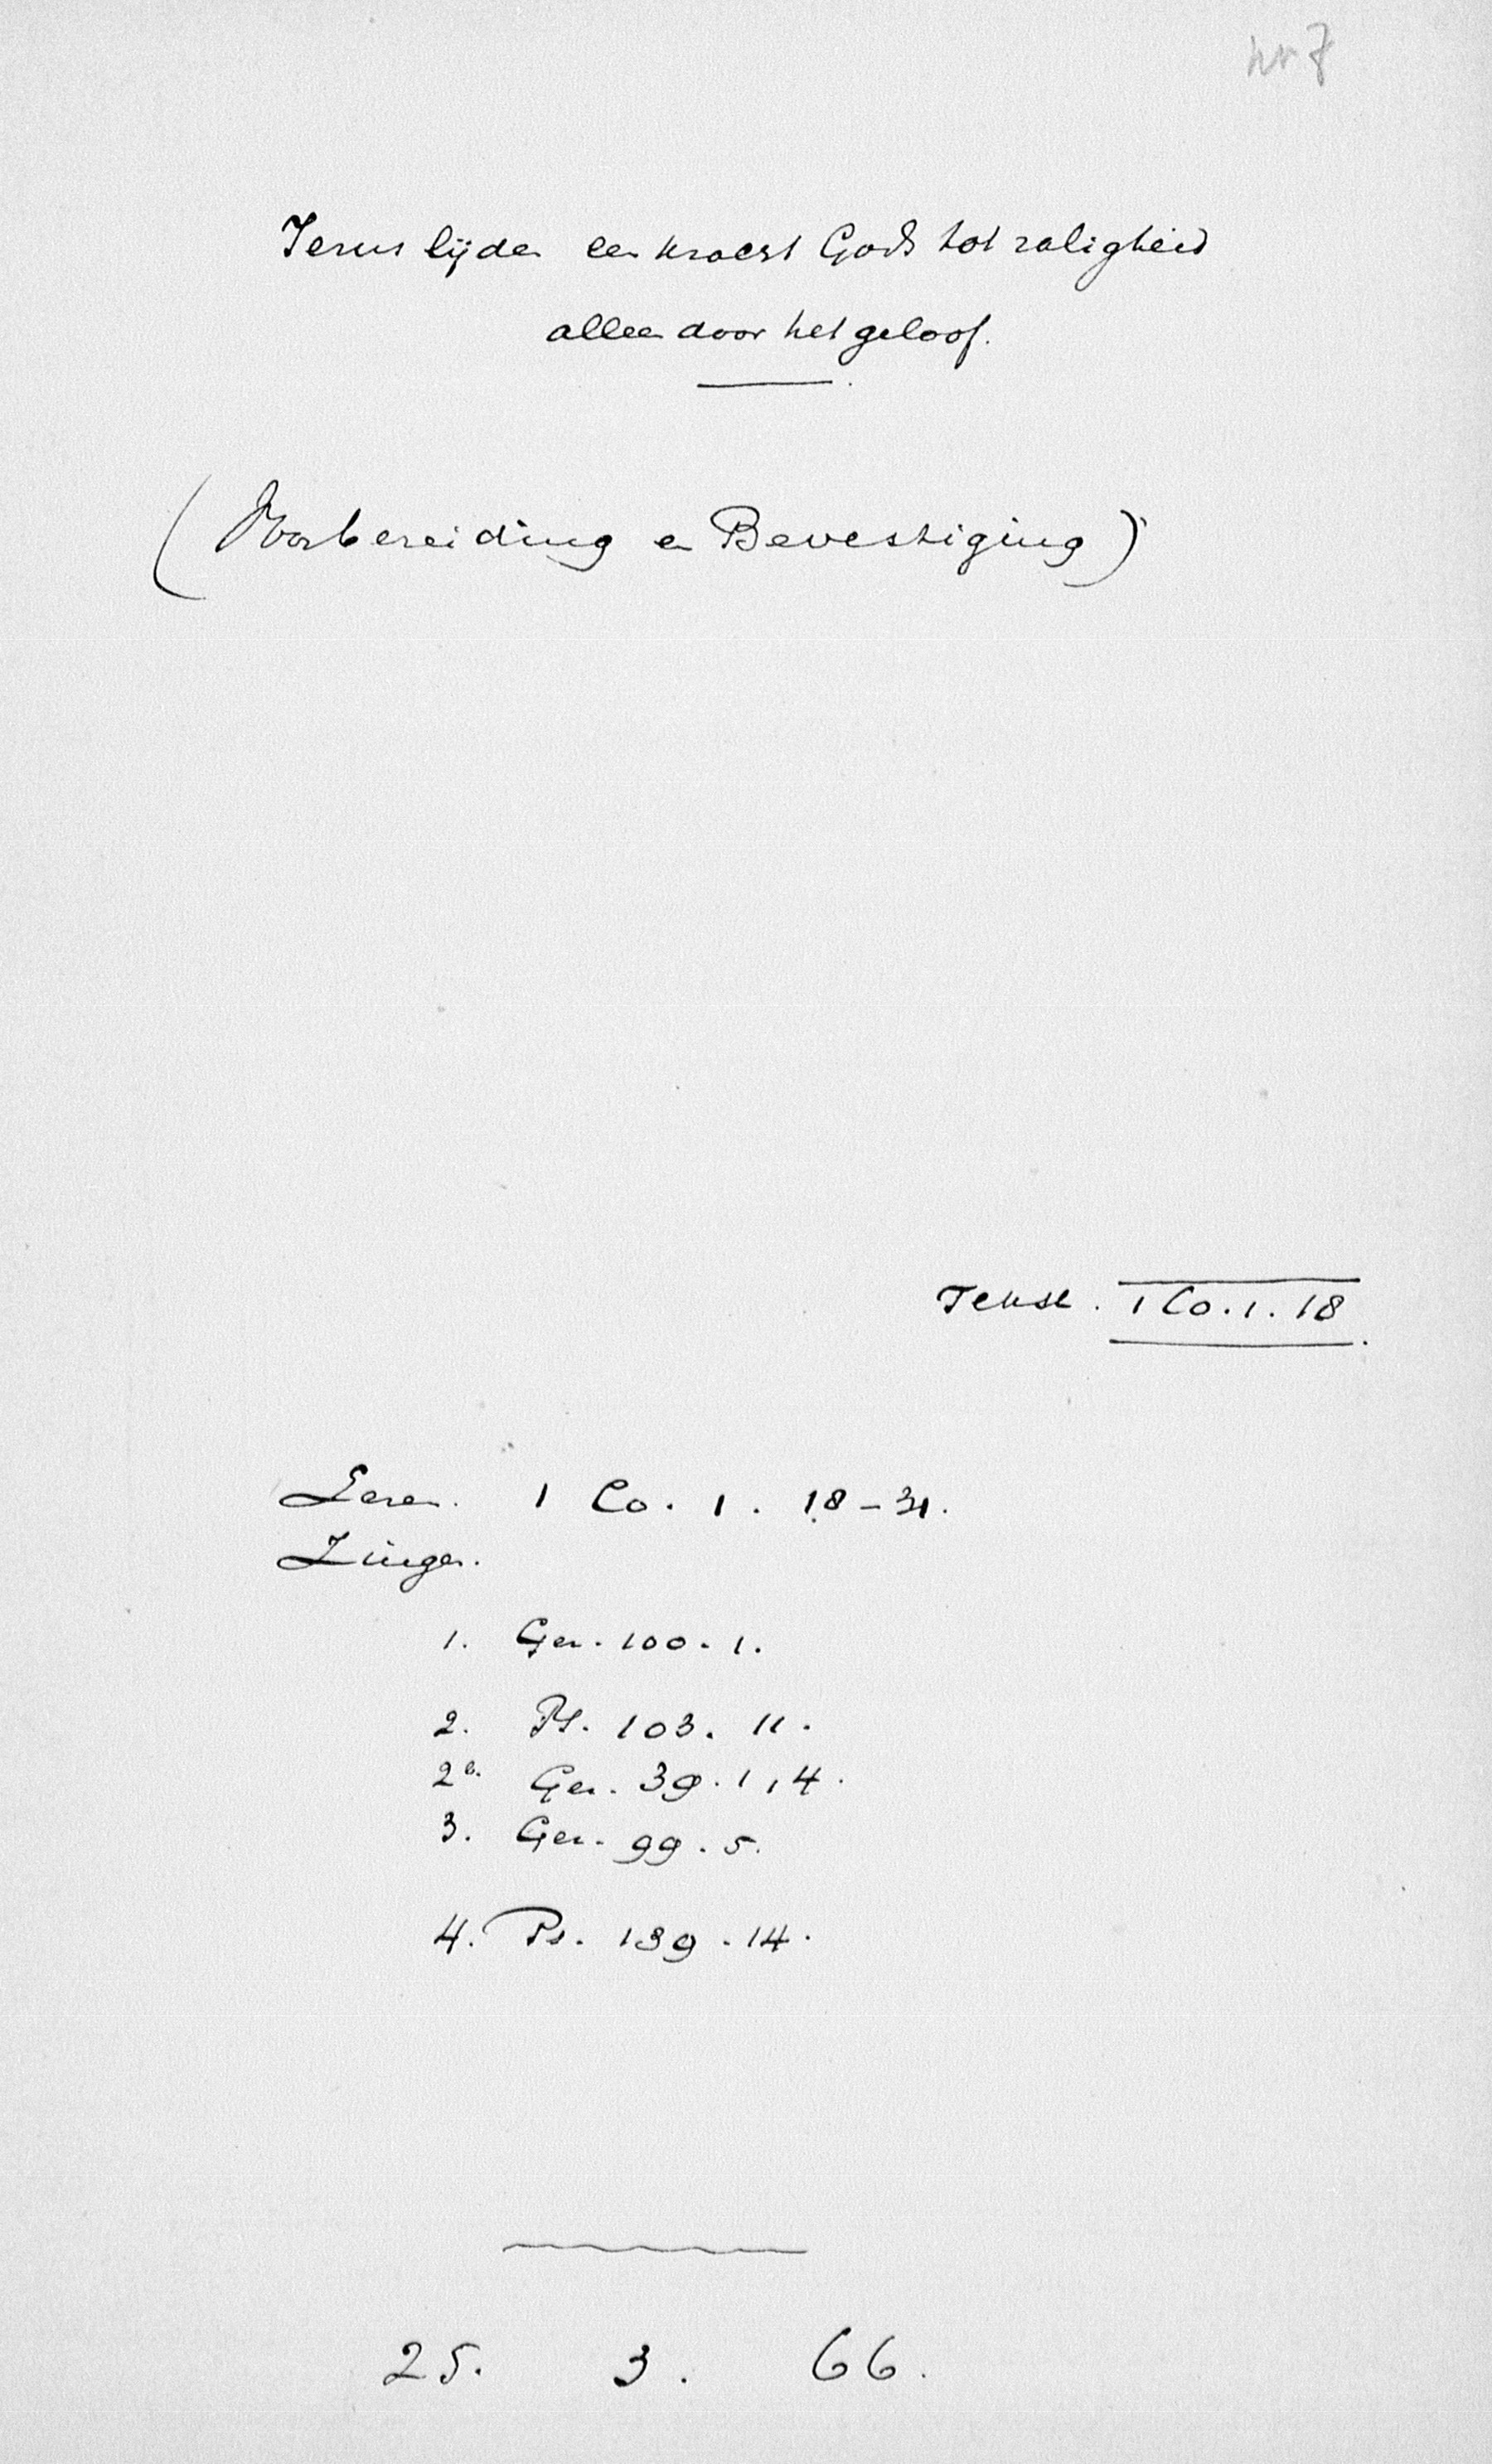 nr 7
Jezus lijden een kracht Gods tot zaligheid
alleen door het geloof.
(Voorbereiding en Bevestiging)
Tekst. 1 Co. 1. 18.
Lezen. 1 Co. 1. 18-31.
Zingen.
1. Gez. 100. 1.
2. Ps. 103. 11.
2e. Gez. 39. 1, 4.
3. Gez. 99. 5.
4. Ps. 139. 14.
25. 3. 66.